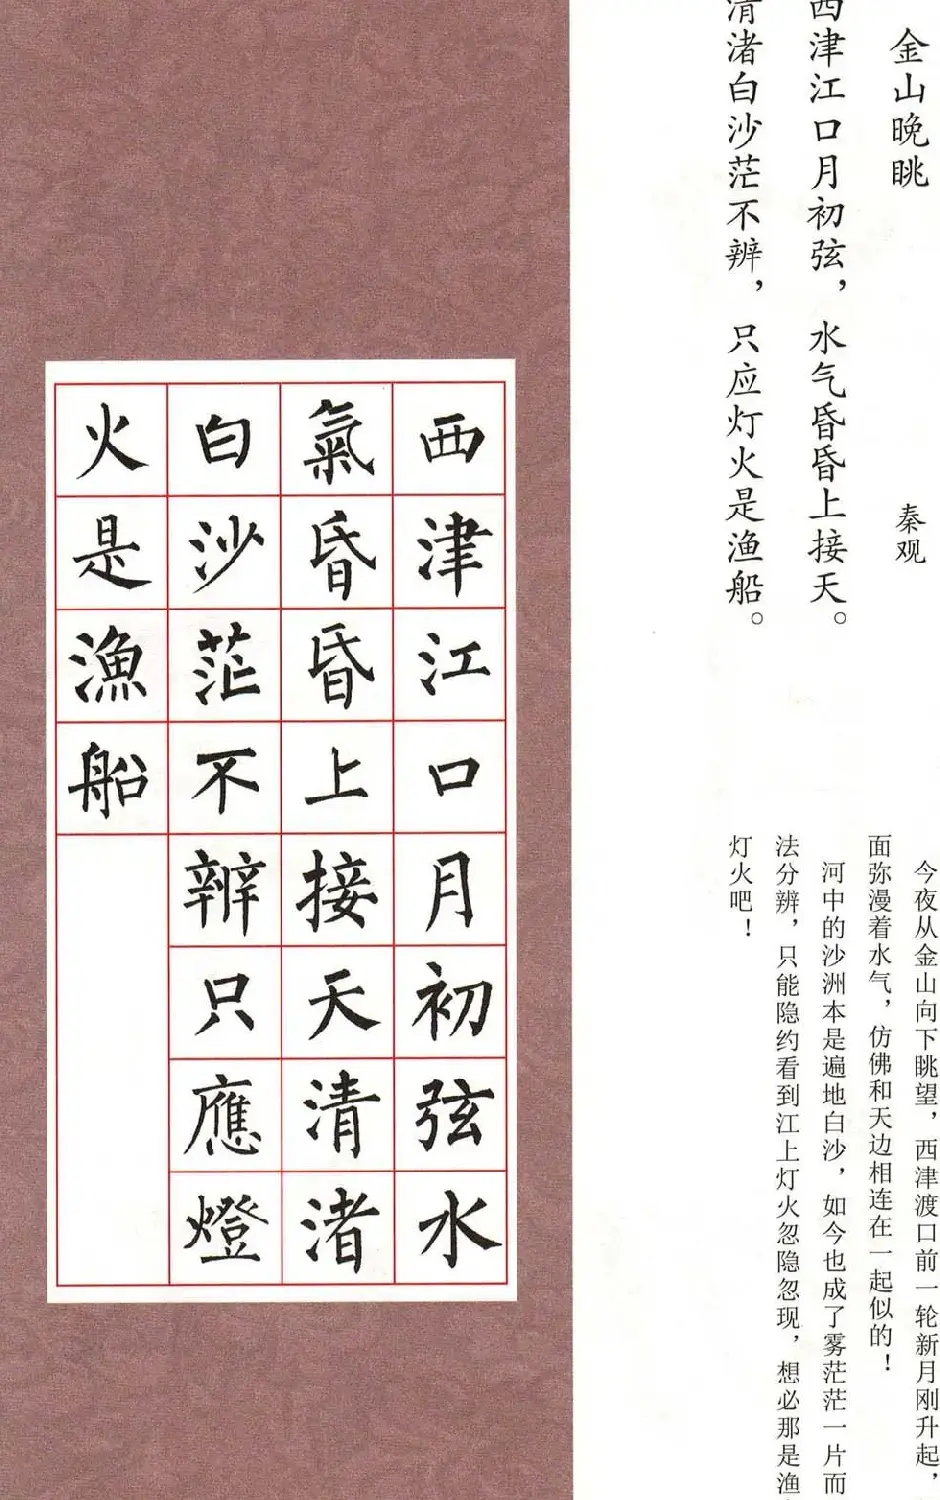 金山晚眺
秦观
西津江口月初弦，水气昏昏上接天。
清渚白沙茫不辨，只应灯火是渔船。
今夜从金山向下眺望，西津渡口前一轮新月刚升起，
面弥漫着水气，仿佛和天边相连在一起似的！
河中的沙洲本是遍地白沙，如今也成了雾茫茫一片而
法分辨，只能隐约看到江上灯火忽隐忽现，想必那是渔
灯火吧！
西津江口月初弦水
氣昏昏上接天清渚
白沙茫不辨只應燈
火是漁船